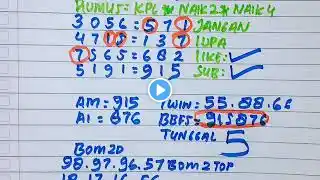 RUMUS = KPL * NAIK 2 * NAIK 4
3 0 5 6 = 5 7 1 JANGAN
4 7 1 5 = 1 3 7 LUPA
7 5 6 5 = 6 8 2 LIKE: ✓
5 1 9 1 = 9 1 5 SUB: ✓
AM = 915 TWIN = 55.88.66
AI = 876 BBFS = 915876
TUNGGAL 5
BOM 2D
98.97.96.57 BOM 2 TOP